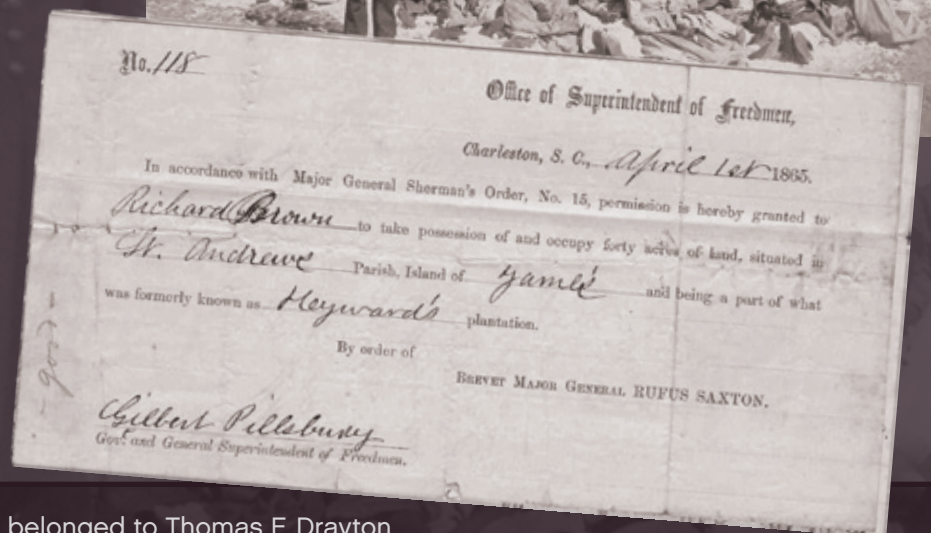 No. 118
Office of Superintendent of Freedmen,
Charleston, S. C., April 1st 1865.
In accordance with Major General Sherman's Order, No. 15, permission is hereby granted to
Richard Brown to take possession of and occupy forty acres of land, situated in
St. Andrews Parish, Island of James and being a part of what
was formerly known as Heyward's plantation.
By order of
Brevet Major General RUFUS SAXTON.
Gilbert Pillsbury
Gov't and General Superintendent of Freedmen.
belonged to Thomas F Drayton